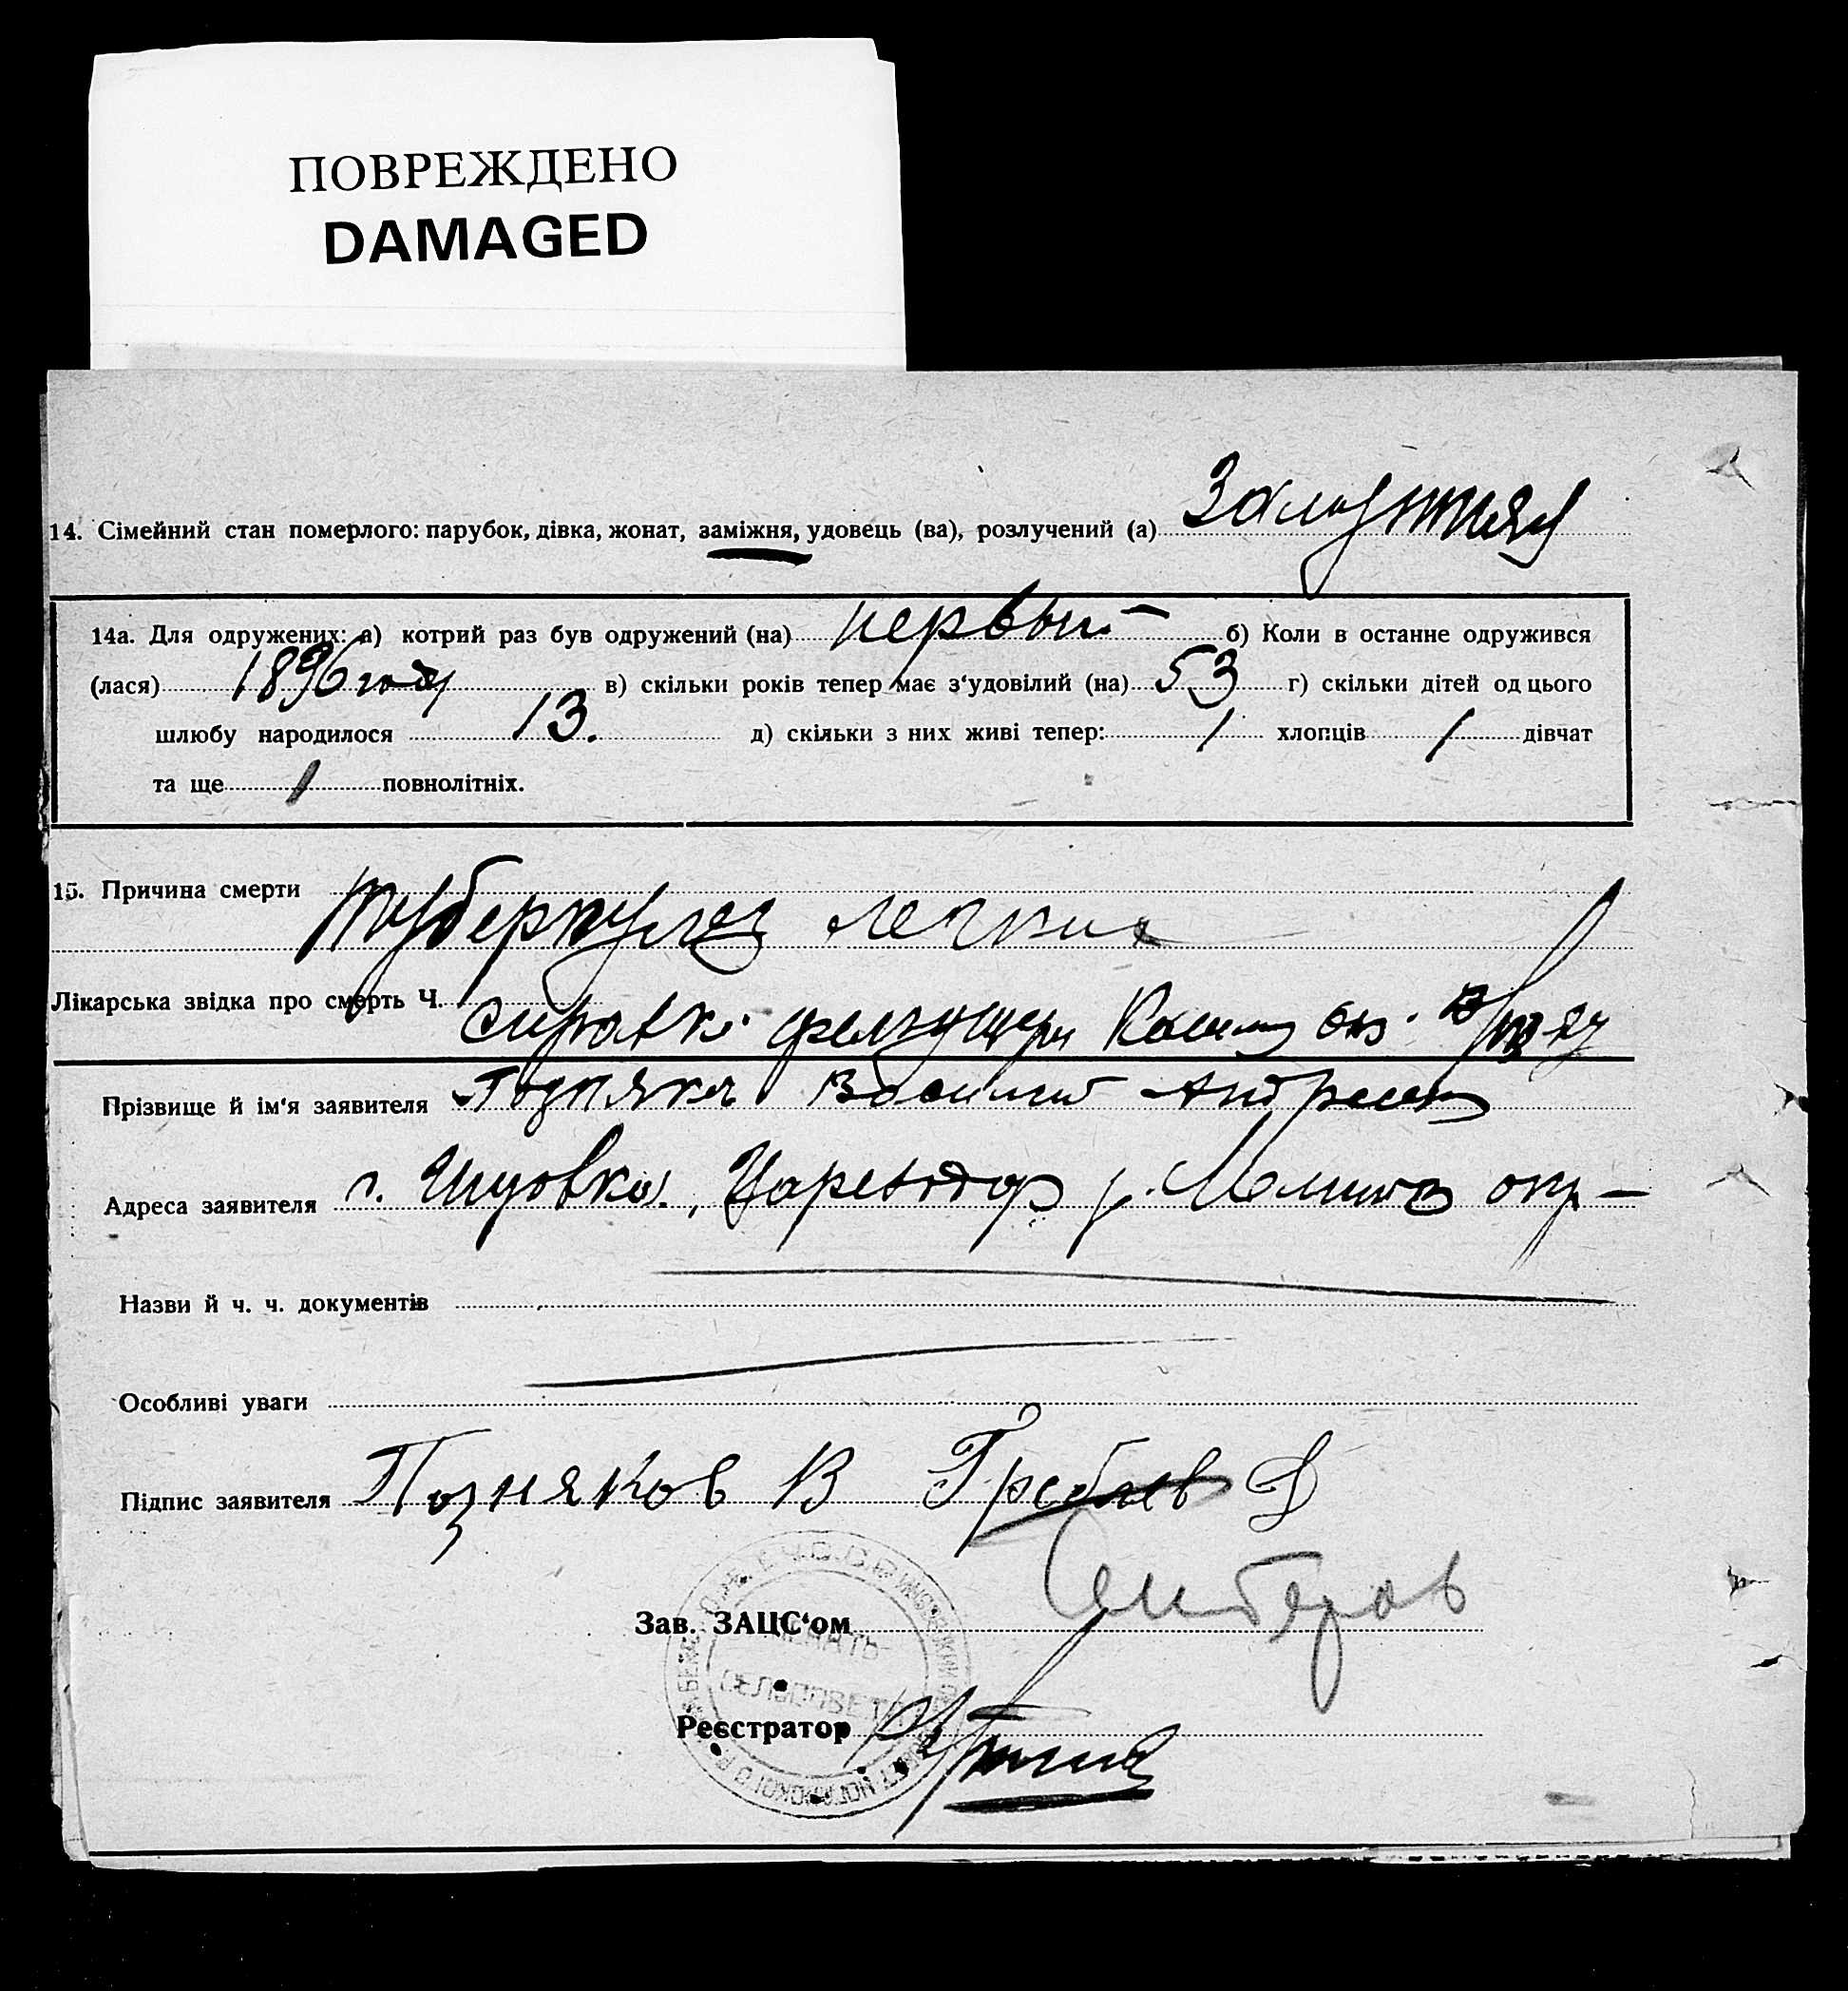 ПОВРЕЖДЕНО
DAMAGED
14. Сімейний стан померлого: парубок, дівка, жонат, заміжня, удовець (ва), розлучений (а) Замужняя
14а. Для одружених: а) котрий раз був одружений (на) первый б) Коли в останне одружився
(лася) 1896 году в) скільки років тепер має з‘удовілий (на) 53 г) скільки дітей од цього
шлюбу народилося 13. д) скільки з них живі тепер: 1 хлопців 1 дівчат
та ще 1 повнолітніх.
15. Причина смерти
туберкулез легких
Лікарська звідка про смерть Ч. справка фельдшера
Прізвище й ім‘я заявителя Василий Андреев
Адреса заявителя
Назви й ч. ч. документів
Особливі уваги
Підпис заявителя Позняков В Гребнев Д
Зав. ЗАЦС‘ом
ПЕЧАТЬ
СЕЛЬСОВЕТА
Реєстратор